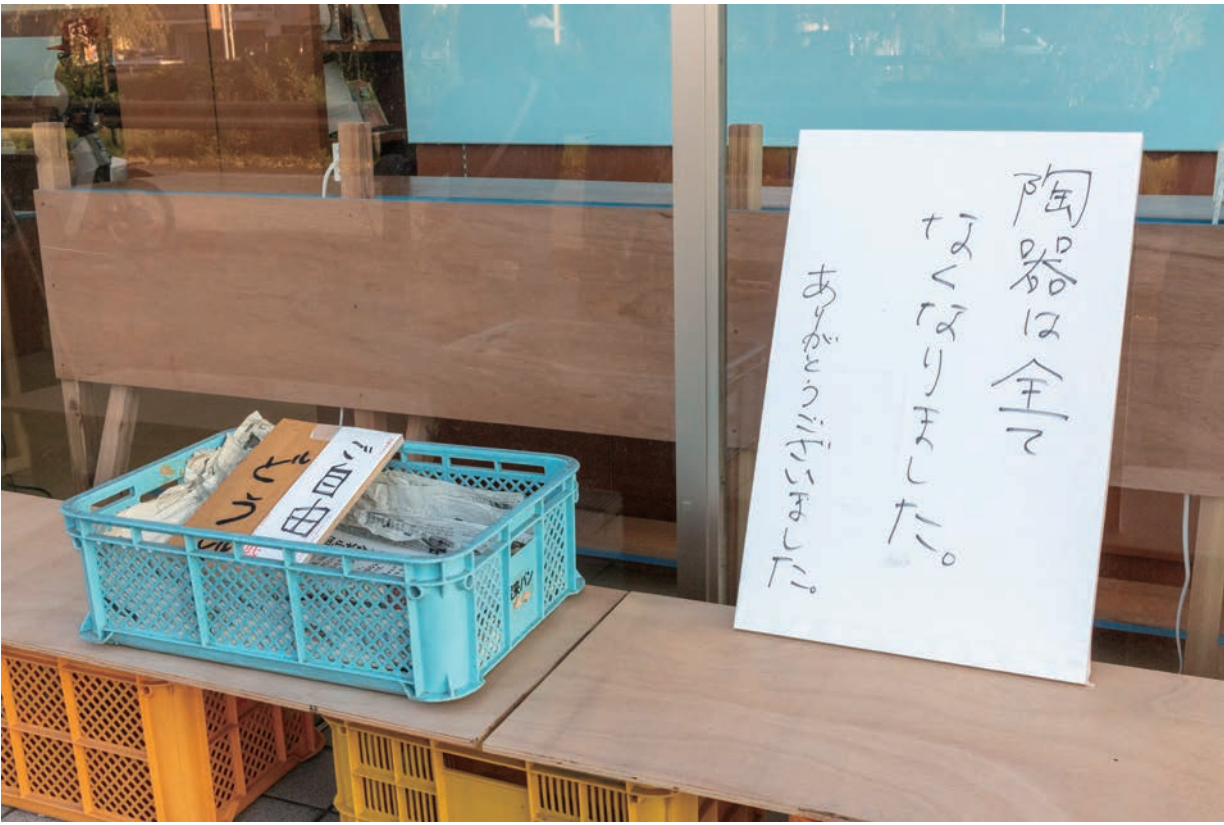 陶器は全て
なくなりました。
ありがとうございました。